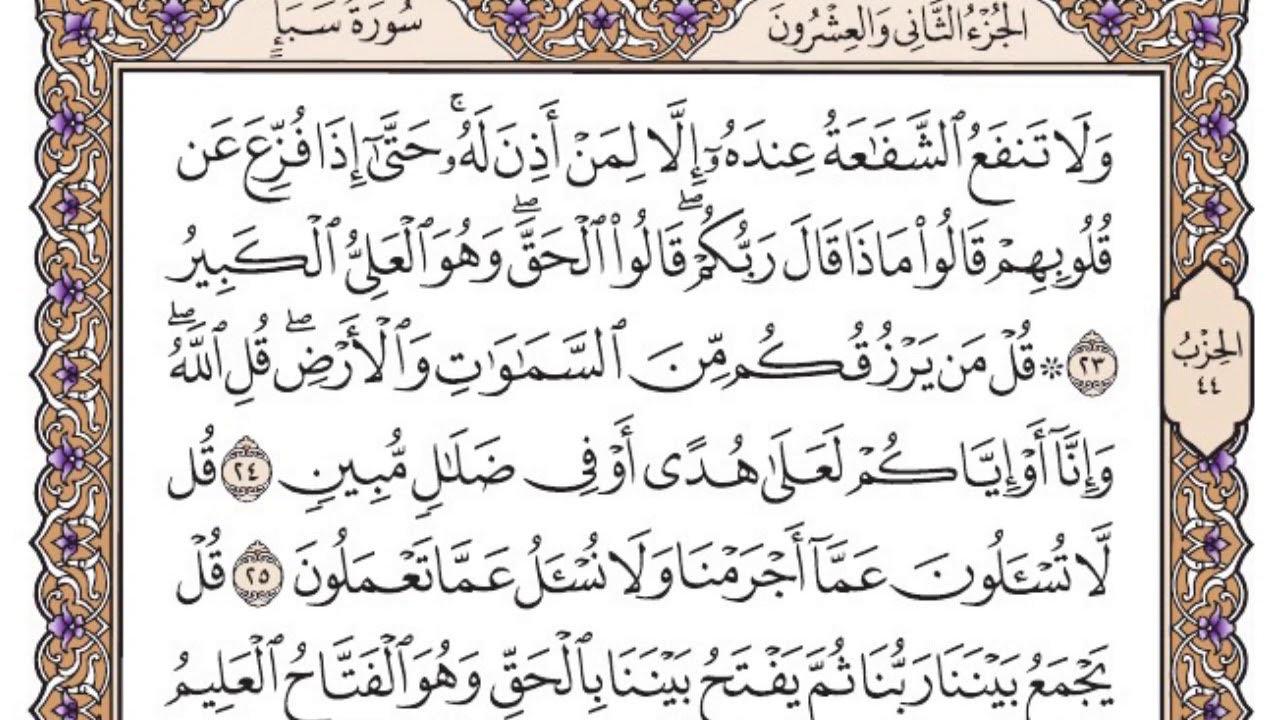 الجُزْءُ الثَّانِي وَالعِشْرُونَ
سُورَةُ سَبَإٍ
وَلَا تَنفَعُ ٱلشَّفَٰعَةُ عِندَهُۥٓ إِلَّا لِمَنْ أَذِنَ لَهُۥۚ حَتَّىٰٓ إِذَا فُزِّعَ عَن
قُلُوبِهِمْ قَالُوا۟ مَاذَا قَالَ رَبُّكُمْۖ قَالُوا۟ ٱلْحَقَّۖ وَهُوَ ٱلْعَلِىُّ ٱلْكَبِيرُ
٢٣ ۞ قُلْ مَن يَرْزُقُكُم مِّنَ ٱلسَّمَٰوَٰتِ وَٱلْأَرْضِۖ قُلِ ٱللَّهُۖ
وَإِنَّآ أَوْ إِيَّاكُمْ لَعَلَىٰ هُدًى أَوْ فِى ضَلَٰلٍ مُّبِينٍ ٢٤ قُل
لَّا تُسْـَٔلُونَ عَمَّآ أَجْرَمْنَا وَلَا نُسْـَٔلُ عَمَّا تَعْمَلُونَ ٢٥ قُلْ
يَجْمَعُ بَيْنَنَا رَبُّنَا ثُمَّ يَفْتَحُ بَيْنَنَا بِٱلْحَقِّ وَهُوَ ٱلْفَتَّاحُ ٱلْعَلِيمُ
الحِزْبُ
٤٤